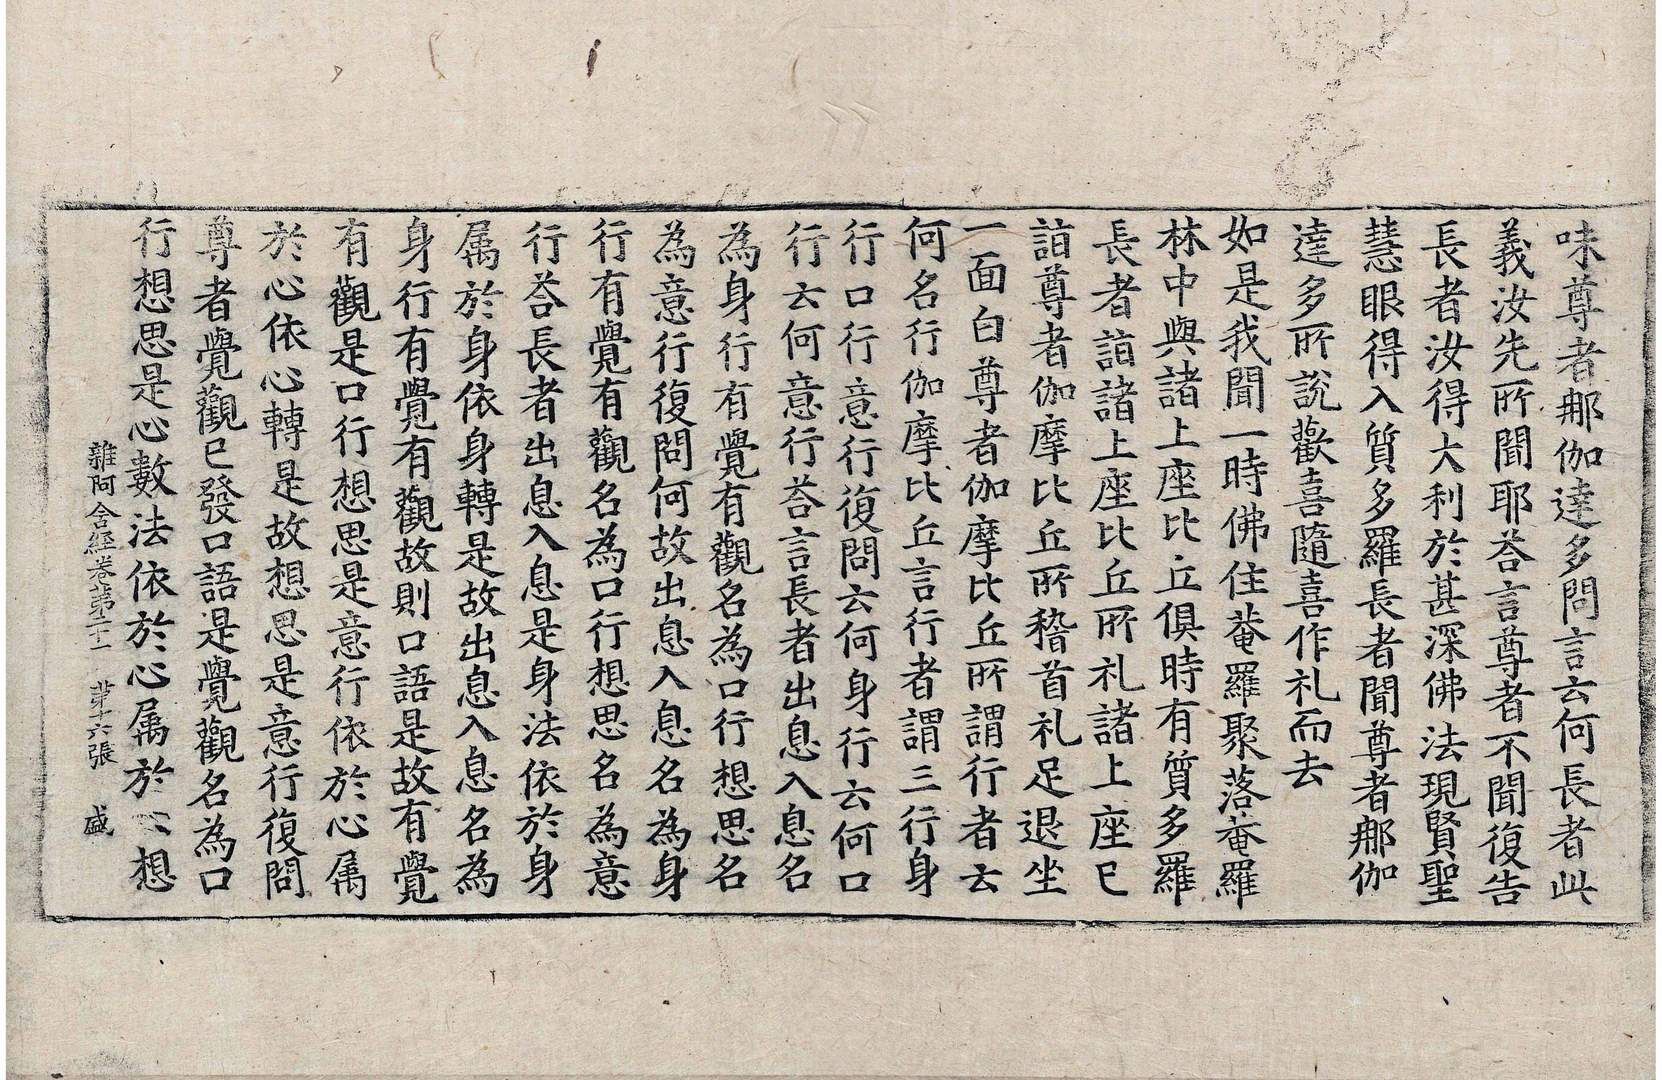 味尊者那伽達多問言云何長者此
義汝先所聞耶荅言尊者不聞復告
長者汝得大利於甚深佛法現賢聖
慧眼得入質多羅長者聞尊者那伽
達多所說歡喜隨喜作礼而去
如是我聞一時佛住菴羅聚落菴羅
林中與諸上座比丘俱時有質多羅
長者詣諸上座比丘所礼諸上座已
詣尊者伽摩比丘所稽首礼足退坐
一面白尊者伽摩比丘所謂行者云
何名行伽摩比丘言行者謂三行身
行口行意行復問云何身行云何口
行云何意行荅言長者出息入息名
為身行有覺有觀名為口行想思名
為意行復問何故出息入息名為身
行有覺有觀名為口行想思名為意
行荅長者出息入息是身法依於身
属於身依身轉是故出息入息名為
身行有覺有觀故則口語是故有覺
有觀是口行想思是意行依於心属
於心依心轉是故想思是意行復問
尊者覺觀已發口語是覺觀名為口
行想思是心數法依於心属於想
雜阿含經卷第二十一 第十六張 盛